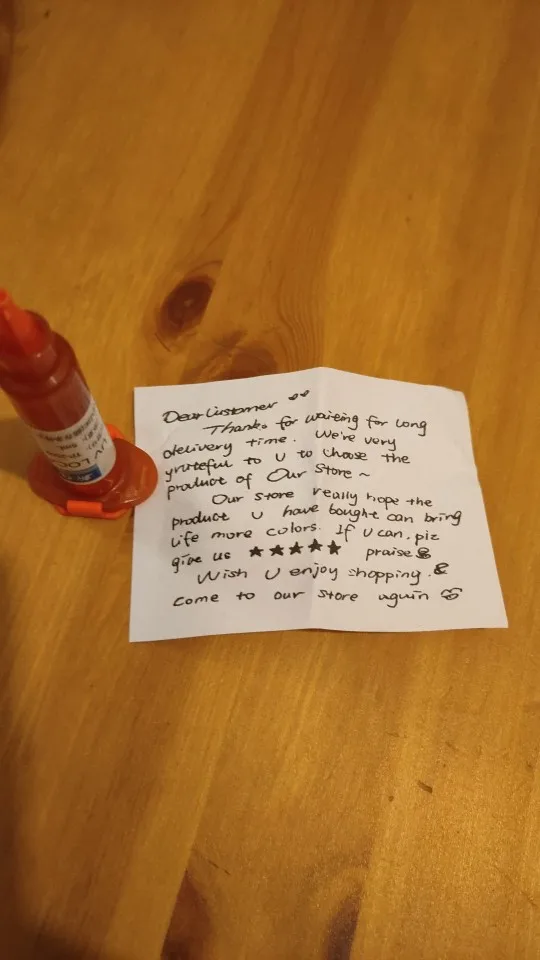 Dear Customer
Thanks for waiting for long
delivery time. We're very
grateful to U to choose the
product of Our Store ~
Our store really hope the
product U have bought can bring
life more colors. If U can, plz
give us ★★★★★ praise &
Wish U enjoy shopping. &
come to our store again
UV LOC